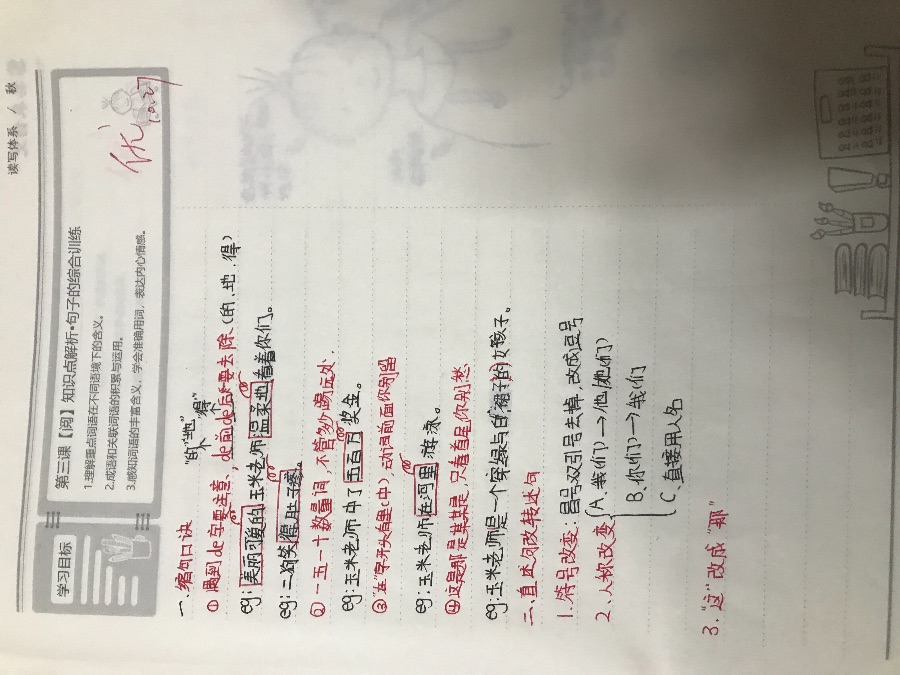 读写体系 / 秋
第三课【阅】知识点解析•句子的综合训练
优
10.27
学习目标
1.理解重点词语在不同语境下的含义。
2.成语和关联词语的积累与运用。
3.感知词语的丰富含义，学会准确用词，表达内心情感。
一、缩句口诀
"的""地""得"
①遇到de字要注意，de前de后要去除(的、地、得)
eg:美丽可爱的玉米老师温柔地看着你们。
eg:二狗笑得肚子疼。
②一五一十数量词，不管多少踢远处.
eg:玉米老师中了五百万奖金。
③"在"字开头有里(中)，动词前面你别留
eg:玉米老师在河里游泳。
④这是那是某某是，只看首尾你别愁
eg:玉米老师是一个穿绿与白裙子的女孩子。
二、直述句改转述句
1.符号改变:冒号双引号去掉,改成逗号
2、人称改变
A.我(们)→他/她(们)
B.你(们)→我(们)
C.直接用人名
3."这"改成"那"